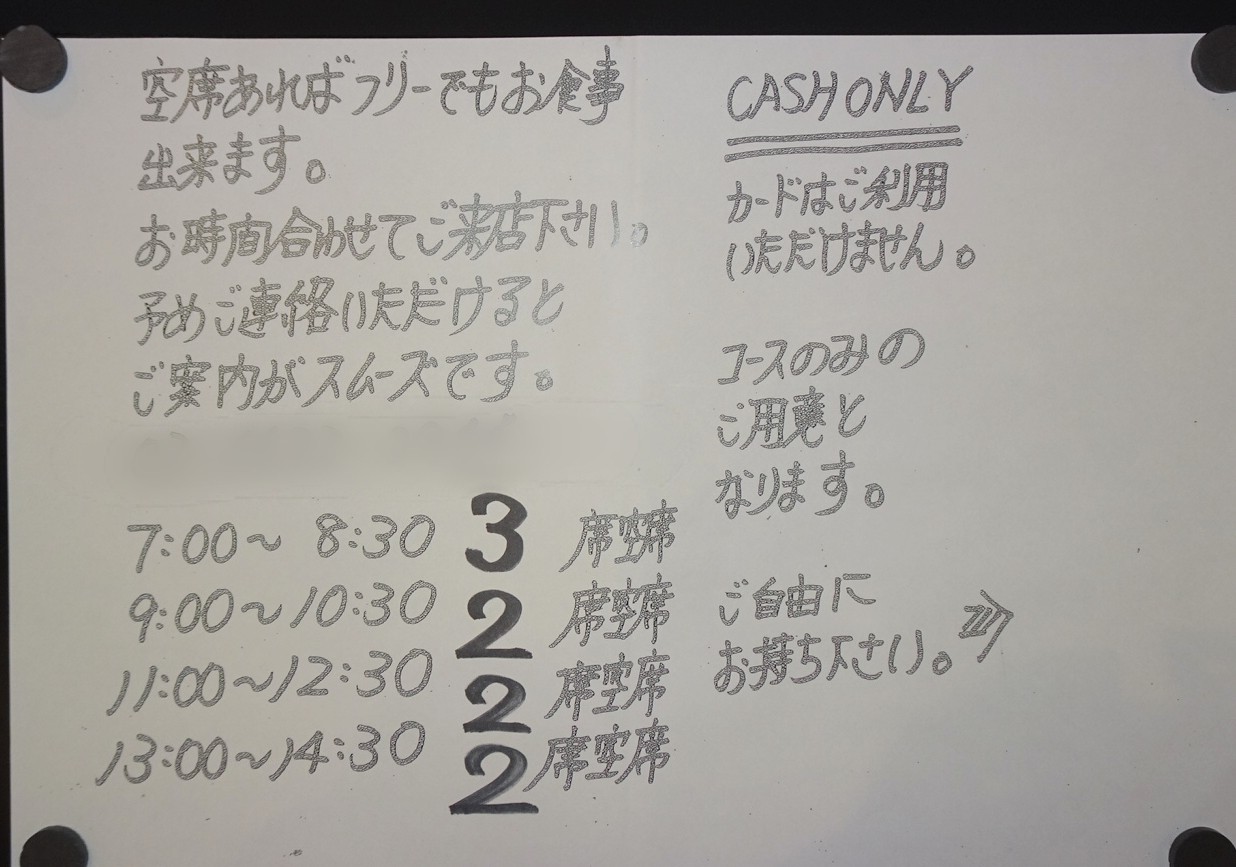 空席あればフリーでもお食事
出来ます。
お時間合わせてご来店下さい。
予めご連絡いただけると
ご案内がスムーズです。
7:00〜8:30 3席空席
9:00〜10:30 2席空席
11:00〜12:30 2席空席
13:00〜14:30 2席空席
CASH ONLY
カードはご利用
いただけません。
コースのみの
ご用意と
なります。
ご自由に
お持ち下さい。